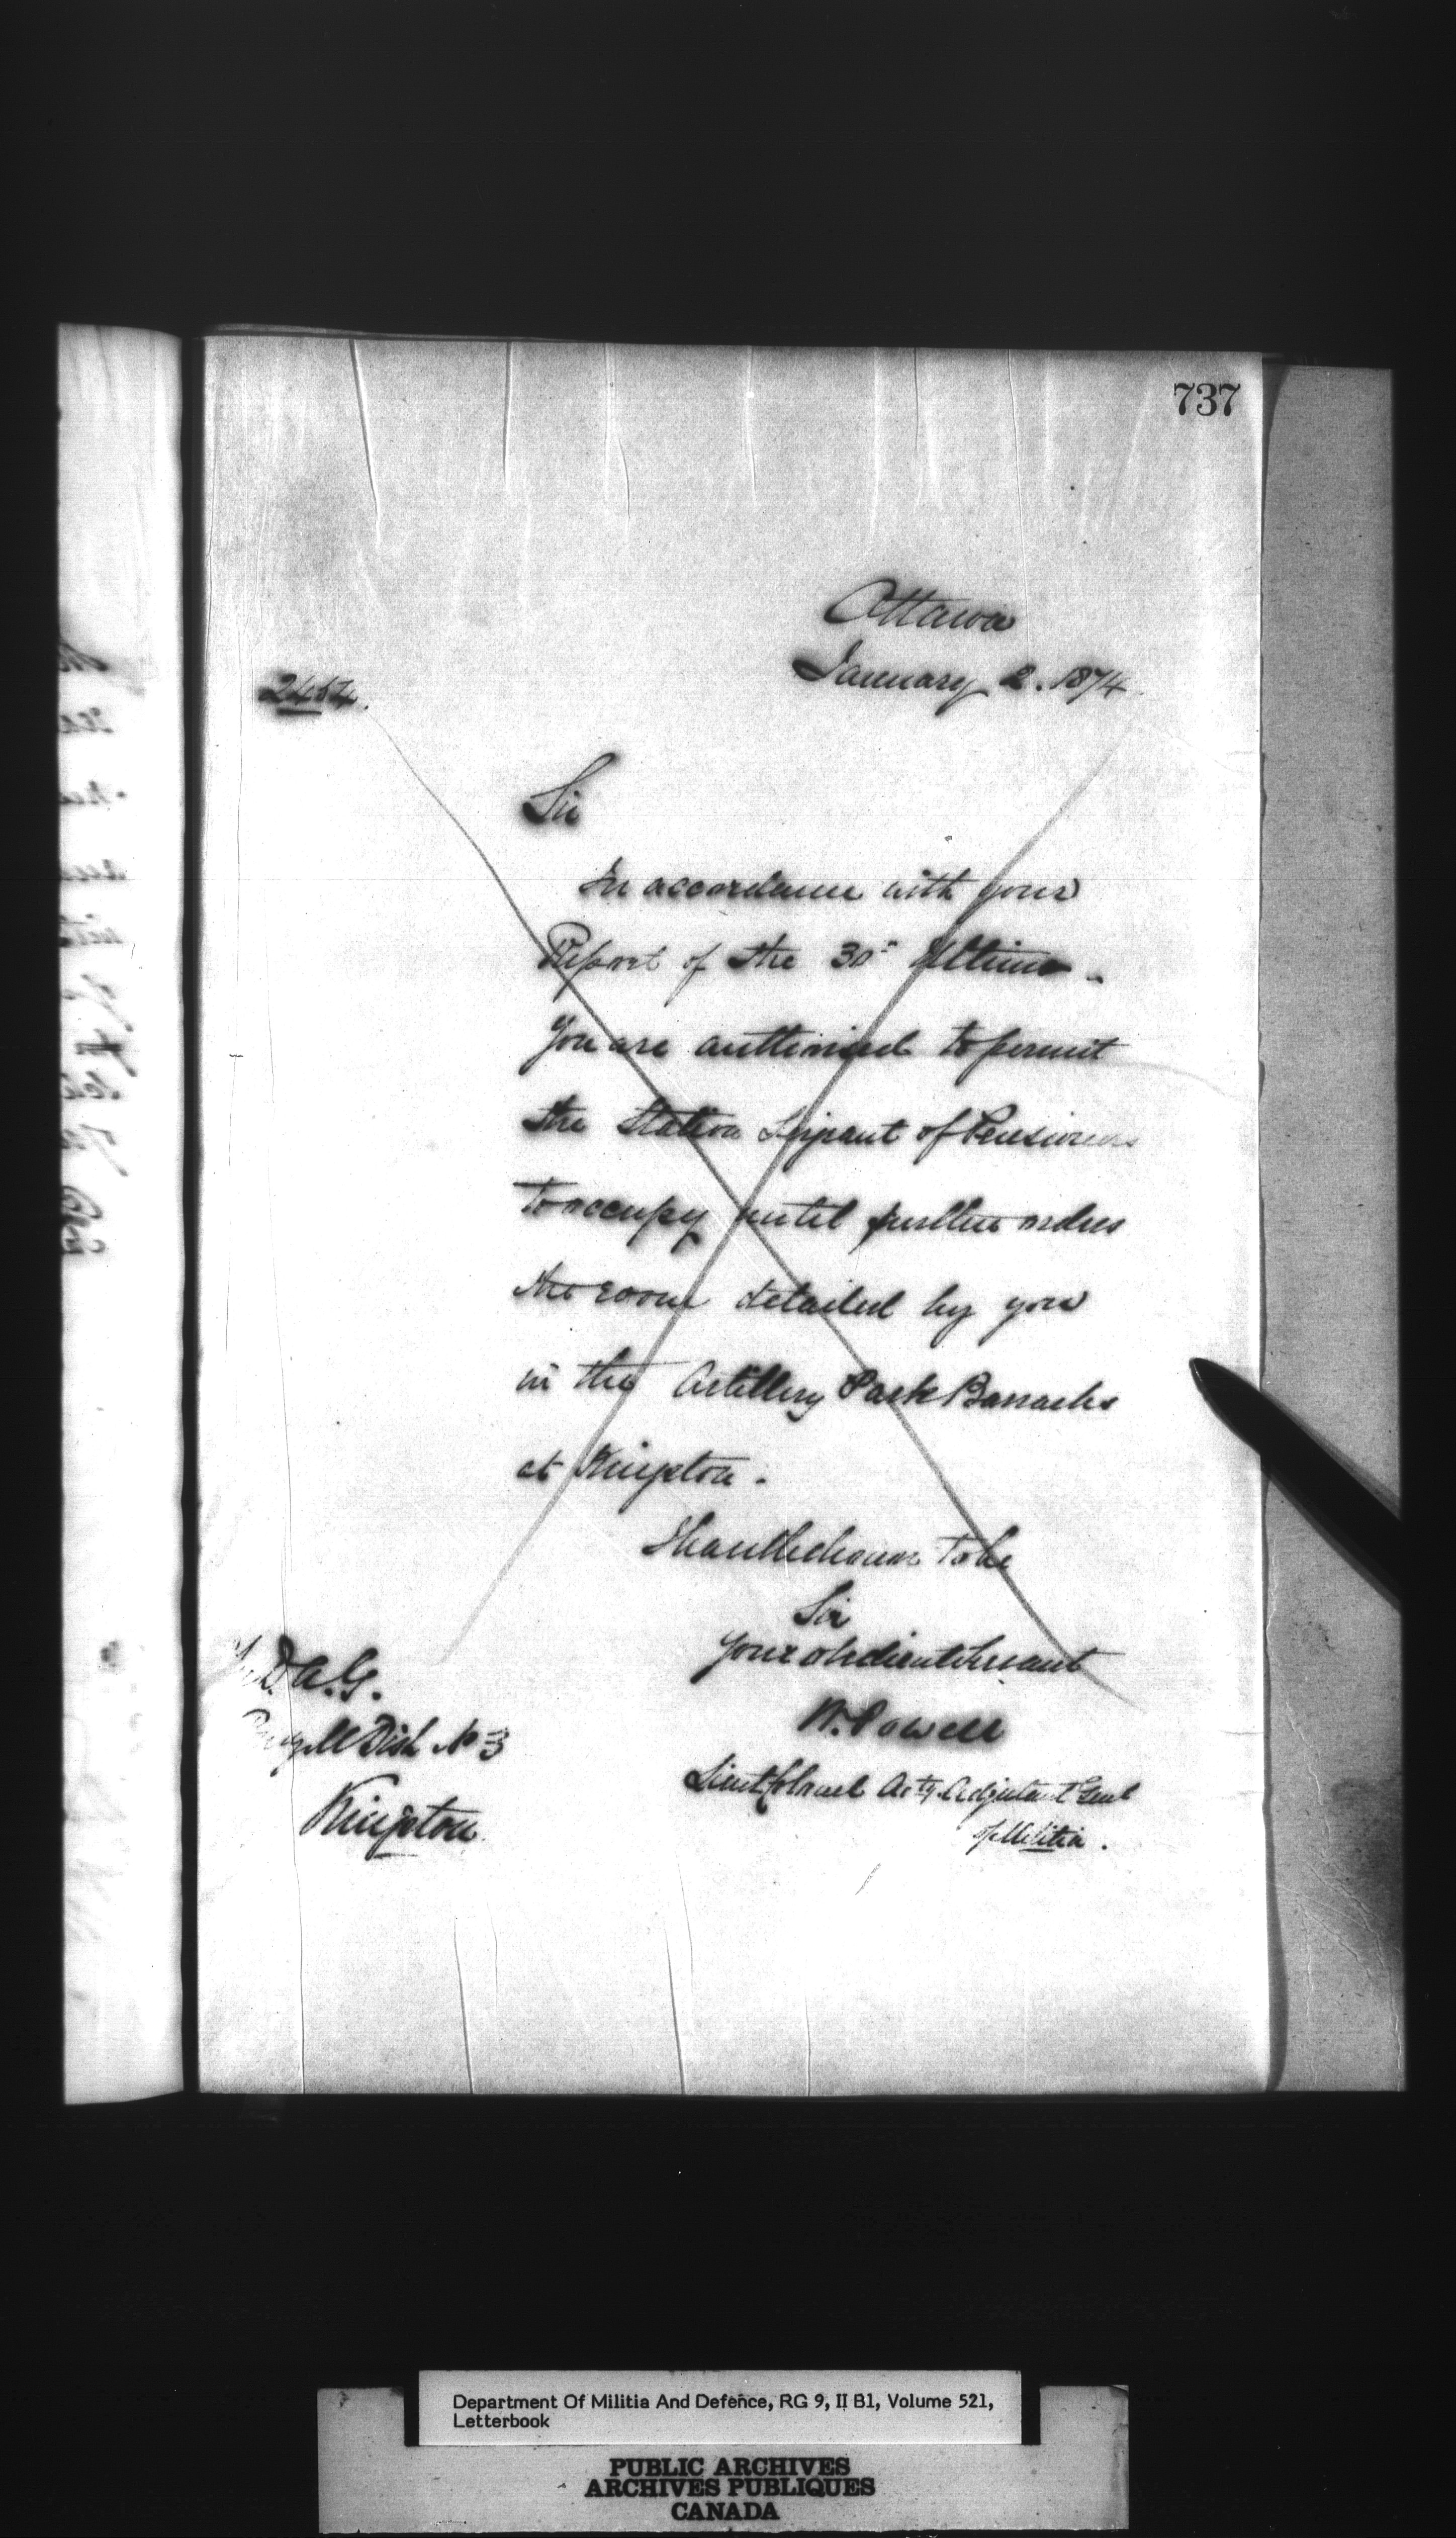 737
Ottawa
January 2. 1874
Sir
In accordance with your
Report of the 30th Ultimo -
you are authorized to permit
the Station Serjeant of Pensioners
to occupy until further orders
the room detailed by you
in the Artillery Park Barracks
at Kingston.
I have the honor to be
Sir
Your obedient Servant
W. Powell
Lieut Colonel Actg Adjutant Genl
of Militia.
D.A.G.
Dist No 3
Kingston
Department Of Militia And Defence, RG 9, II B1, Volume 521,
Letterbook
PUBLIC ARCHIVES
ARCHIVES PUBLIQUES
CANADA